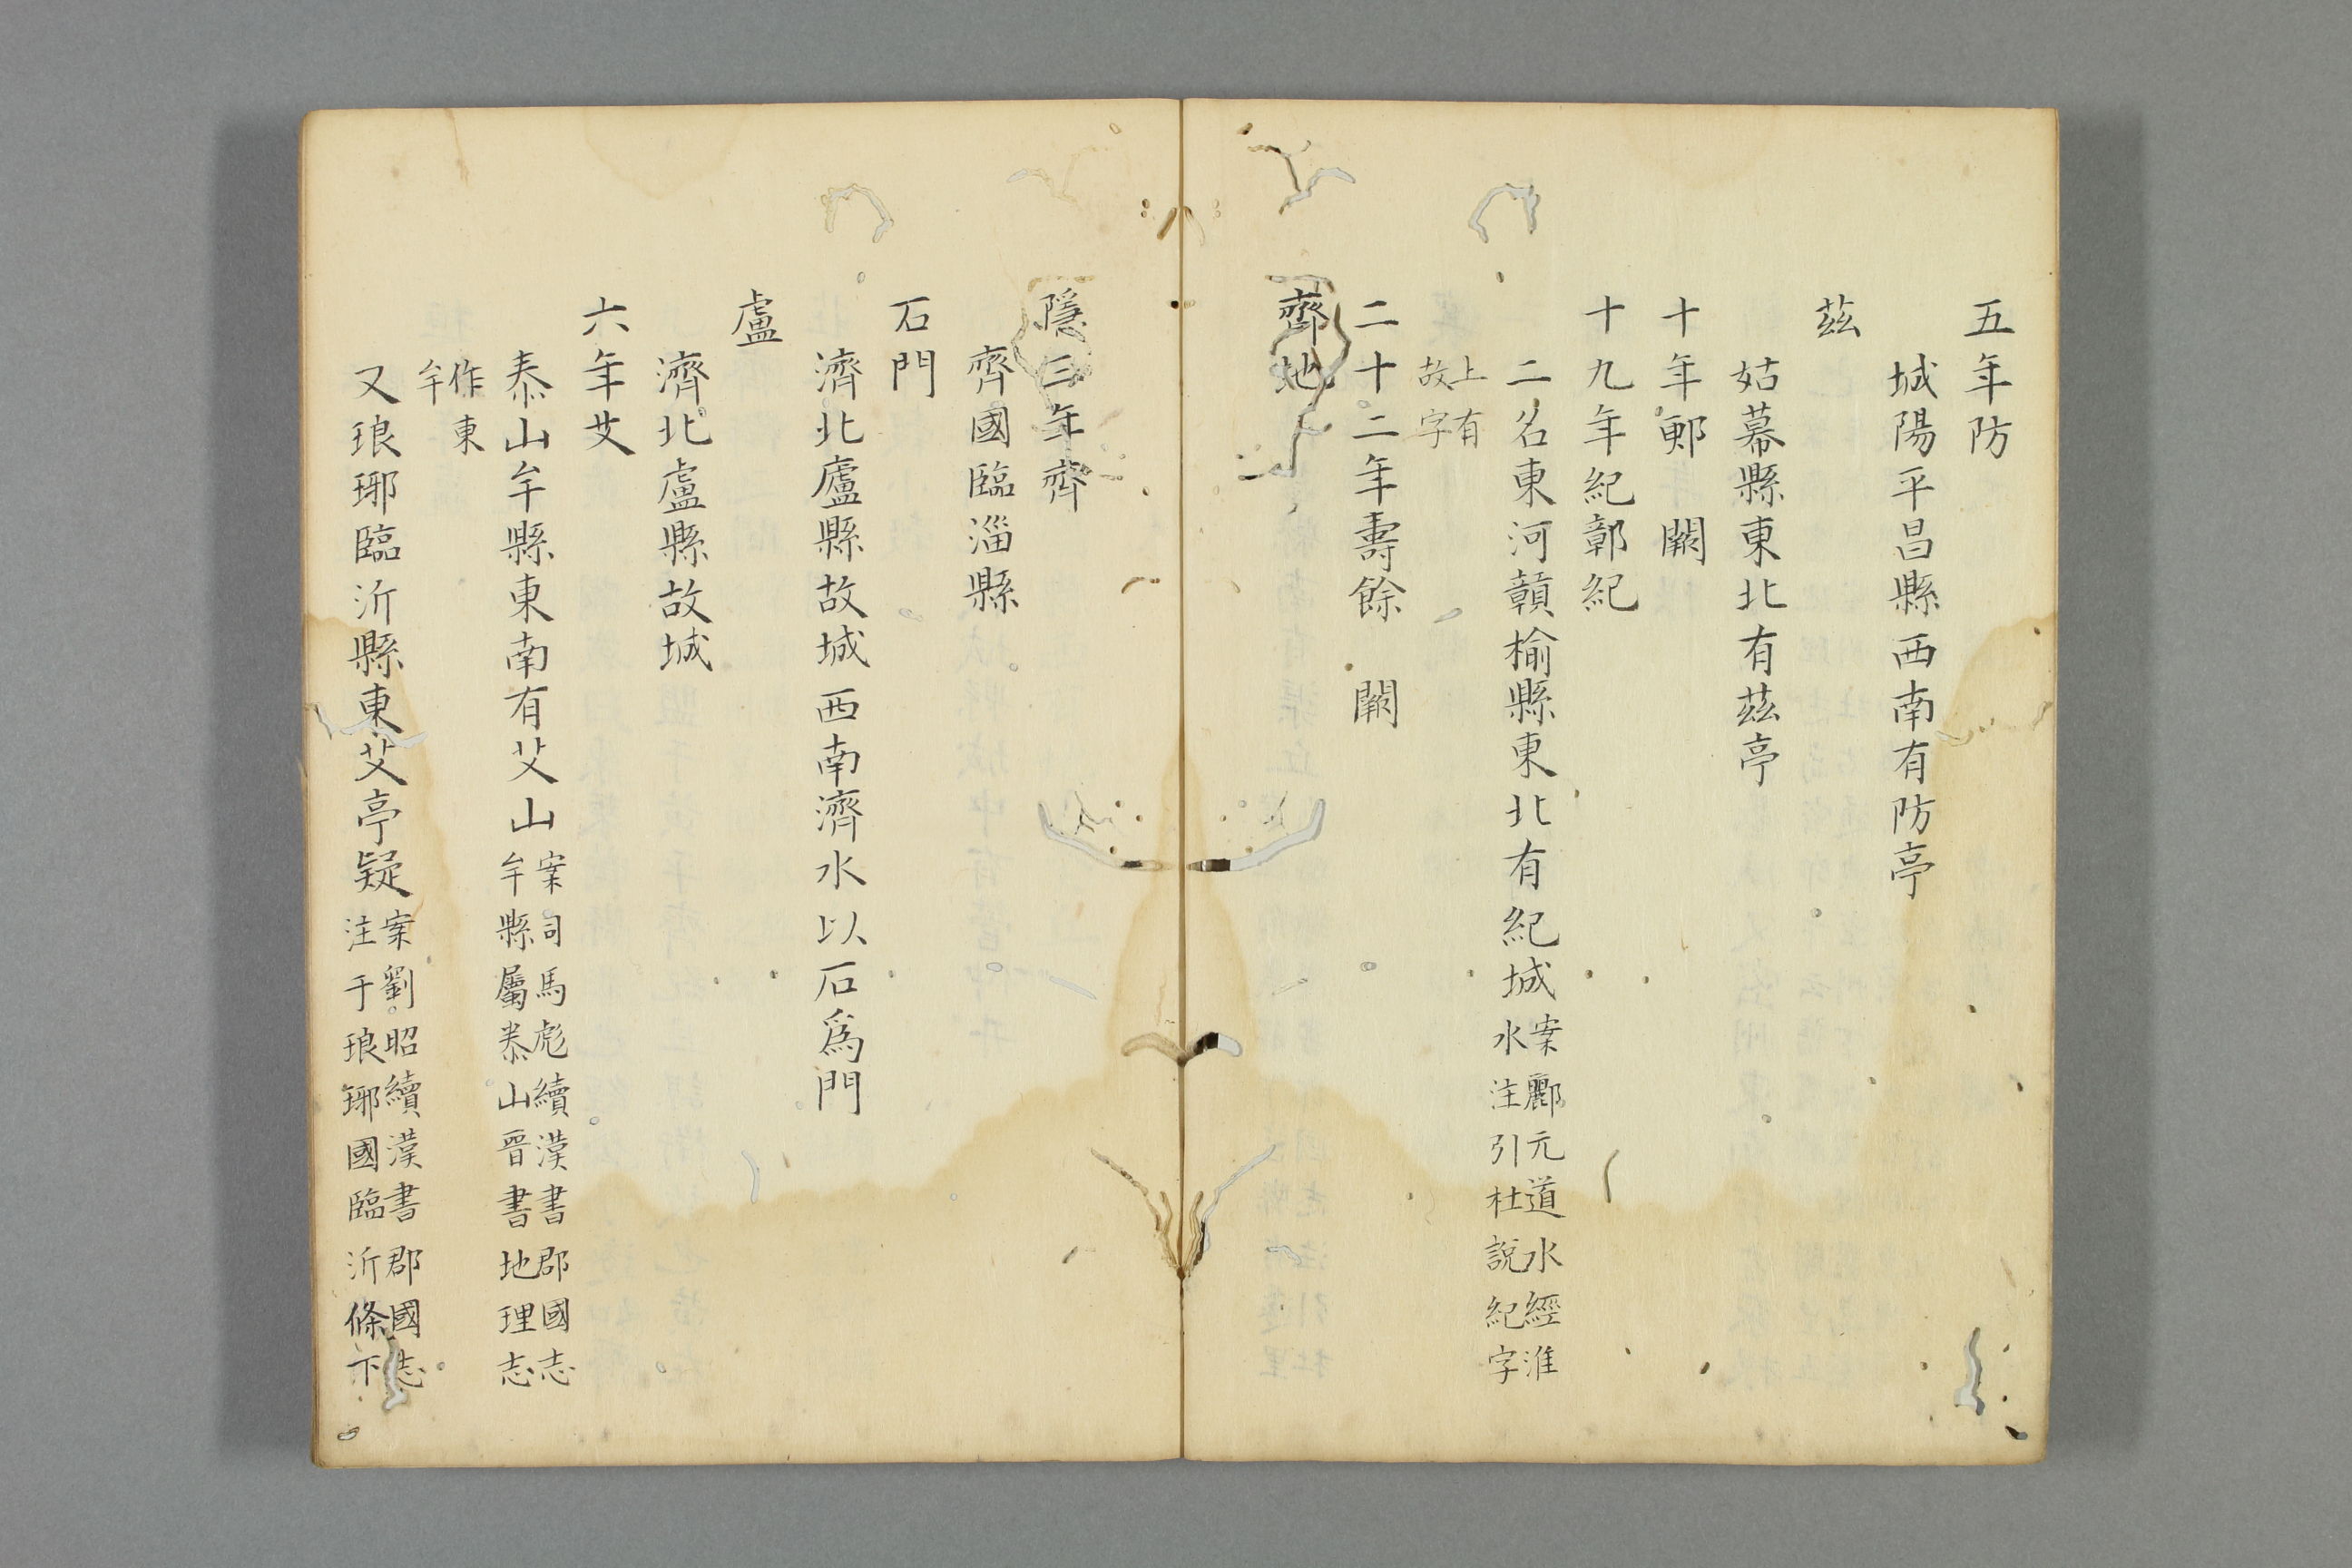 五年防
城陽平昌縣西南有防亭
茲
姑幕縣東北有茲亭
十年鄅　闕
十九年紀鄣紀
二名東河贛榆縣東北有紀城案酈元道水經淮
水注引杜說紀字
上有
故字
二十二年壽餘　闕
齊地
隱三年齊
齊國臨淄縣
石門
濟北廬縣故城西南濟水以石爲門
盧
濟北盧縣故城
六年艾
泰山牟縣東南有艾山案司馬彪續漢書郡國志
牟縣屬泰山晉書地理志
作東
牟
又琅琊臨沂縣東艾亭疑案劉昭續漢書郡國志
注于琅琊國臨沂條下